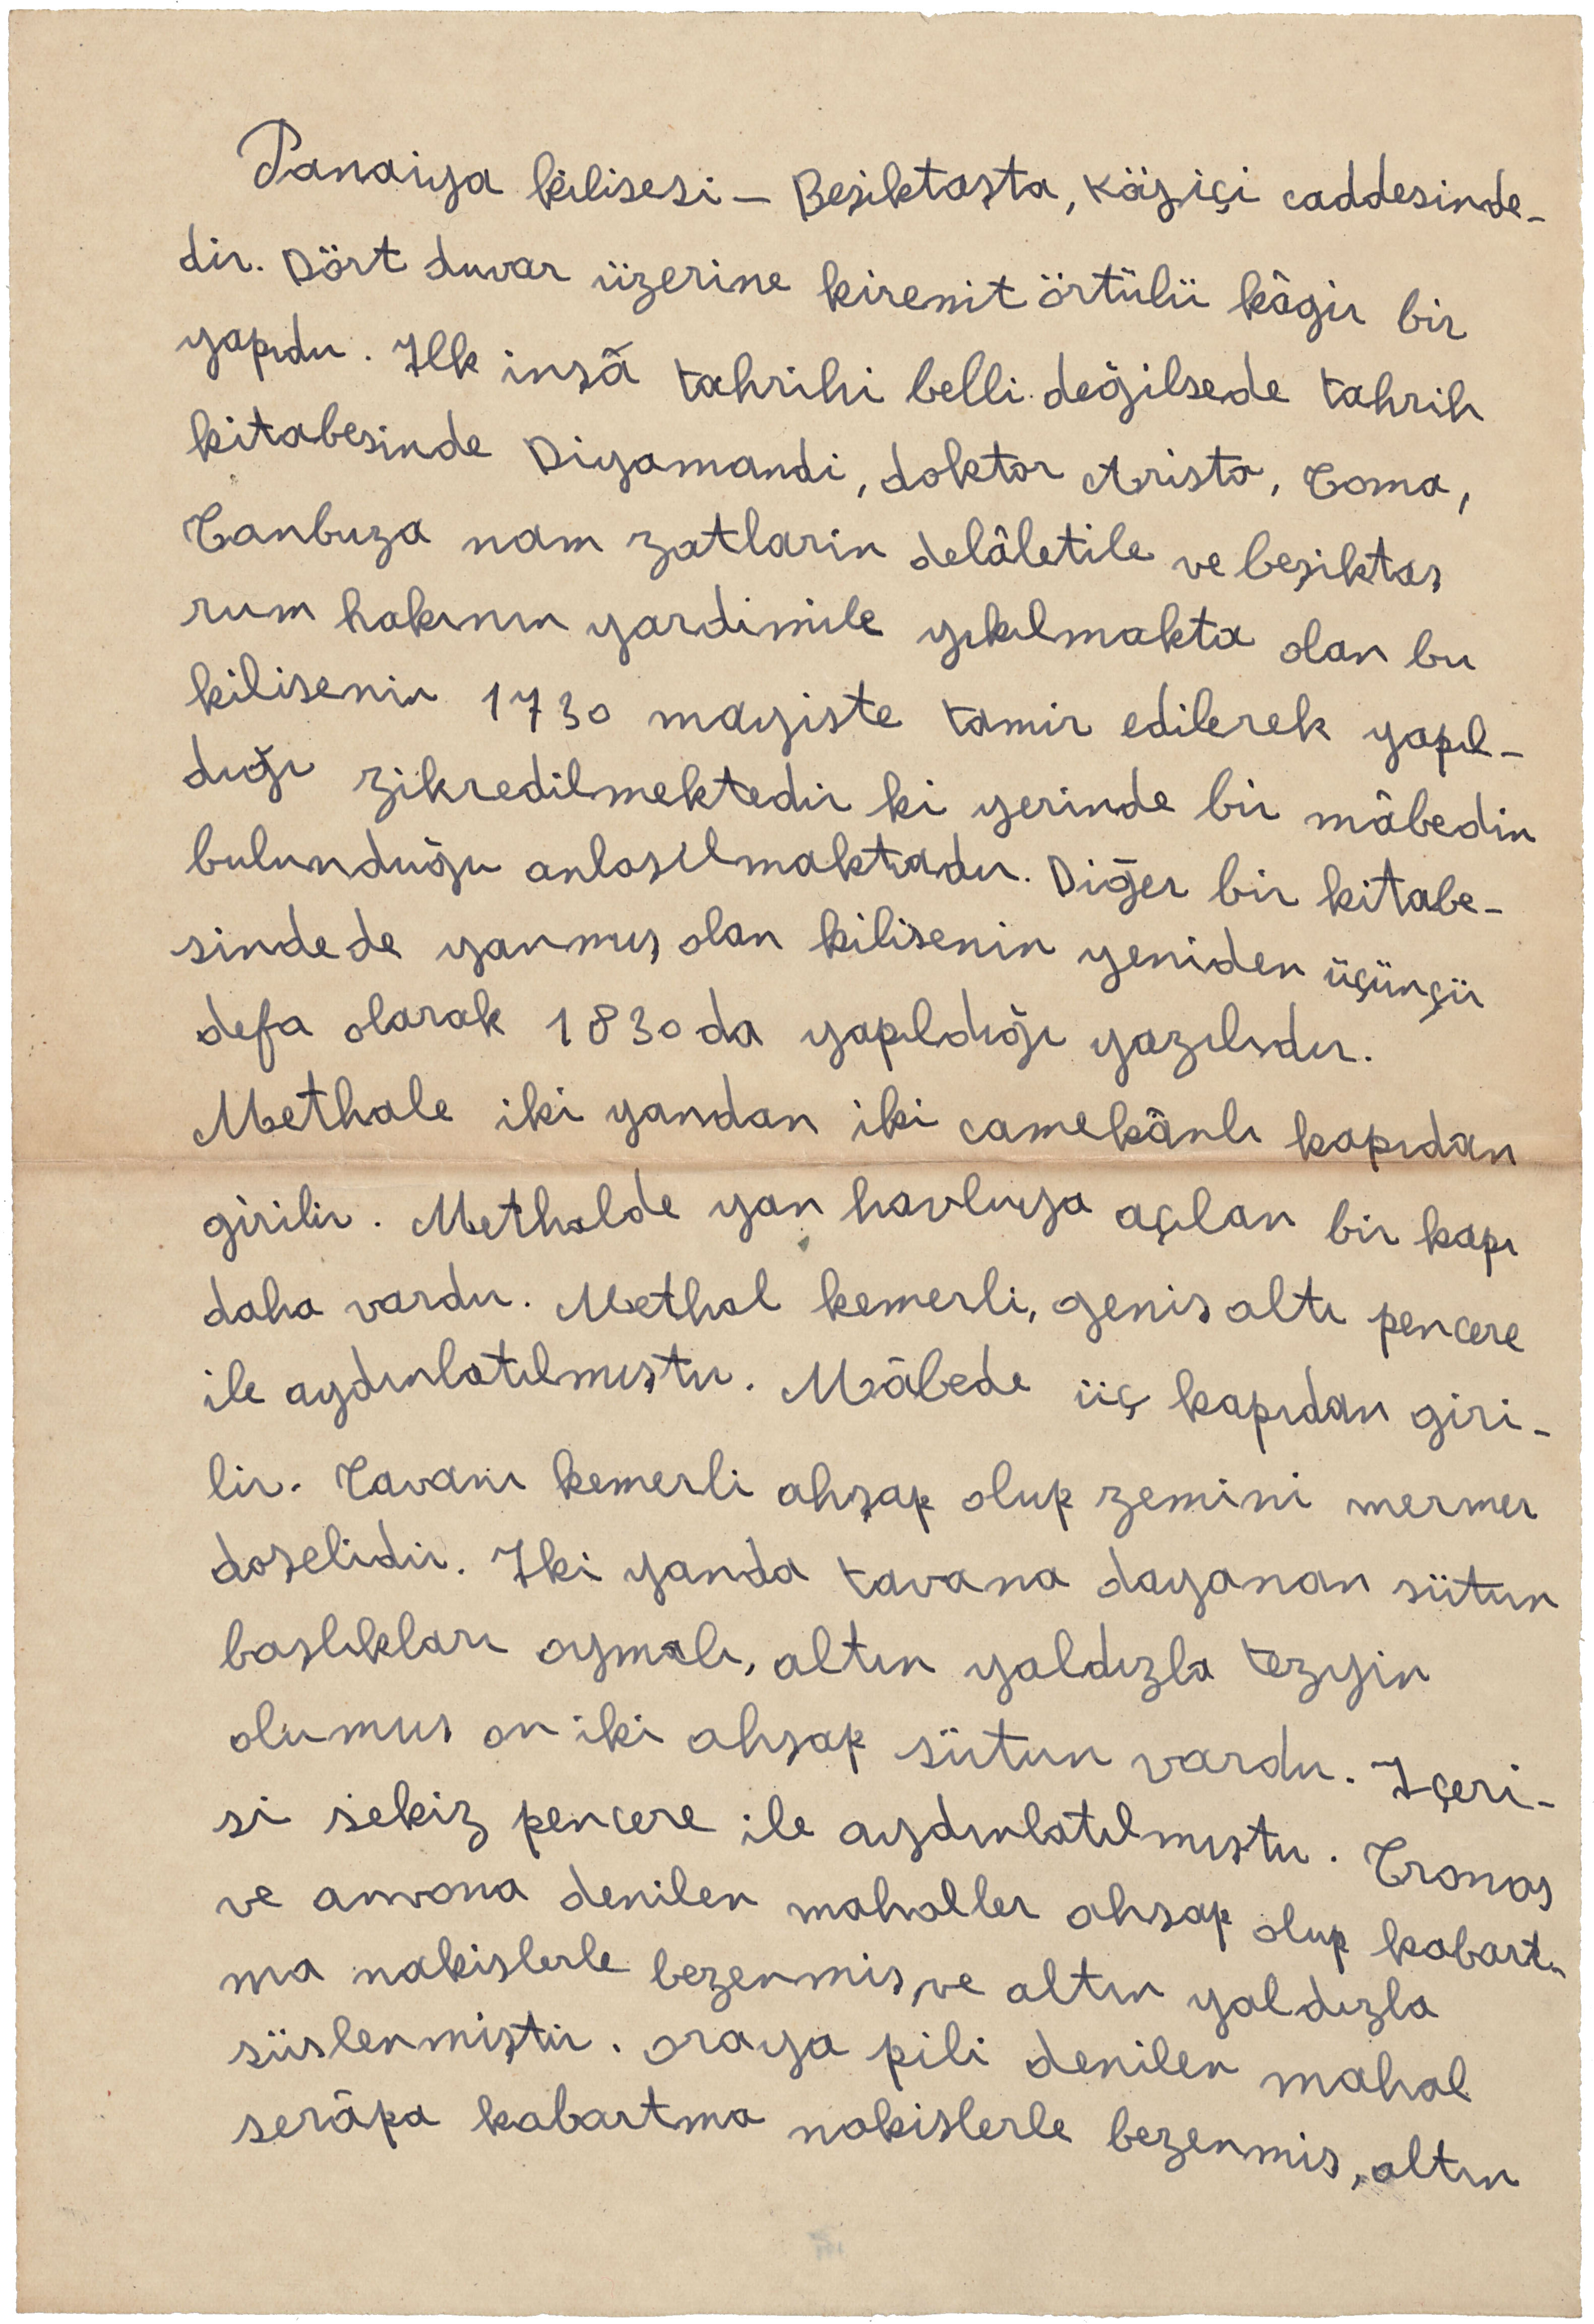 Panaiya kilisesi – Beşiktaşta, Köyiçi caddesinde-
dir. Dört duvar üzerine kiremit örtülü kâgir bir
yapıdır. Ilk inşâ tahrihi belli değilsede tahrih
kitabesinde Diyamandi, doktor Aristo, Toma,
Tanbuza nam zatların delâletile ve beşiktaş
rum halkının yardımile yıkılmakta olan bu
kilisenin 1730 mayiste tamir edilerek yapıl-
dığı zikredilmektedir ki yerinde bir mâbedin
bulunduğu anlaşılmaktadır. Diğer bir kitabe-
sindede yanmış olan kilisenin yeniden üçünçü
defa olarak 1830 da yapıldığı yazılıdır.
Methale iki yandan iki camekânlı kapıdan
girilir. Methalde yan havluya açılan bir kapı
daha vardır. Methal kemerli, geniş altı pencere
ile aydınlatılmıştır. Mâbede üç kapıdan giri-
lir. Tavanı kemerli ahşap olup zemini mermer
doşelidir. Iki yanda tavana dayanan sütun
başlıkları oymalı, altın yaldızla tezyin
olumuş on iki ahşap sütun vardır. Içeri-
si sekiz pencere ile aydınlatılmıştır. Tronos
ve anvona denilen mahaller ahşap olup kabart-
ma nakişlerle bezenmiş, ve altın yaldızla
süslenmiştir. oraya pili denilen mahal
serâpa kabartma nakişlerle bezenmiş, altın